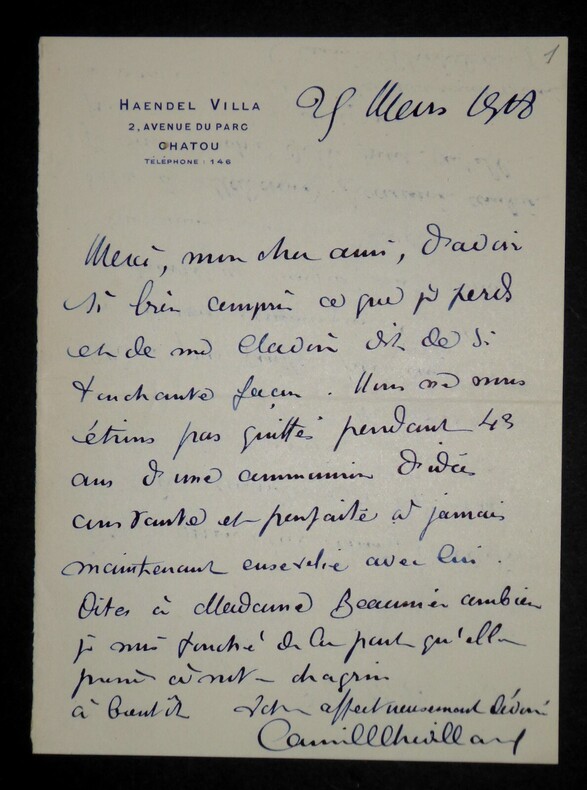 1
HAENDEL VILLA
2, AVENUE DU PARC
CHATOU
TÉLÉPHONE : 146
25 Mars 1918
Merci, mon cher ami, d'avoir
si bien compris ce que je perds
et de me l'avoir dit de si
touchante façon. Nous ne nous
étions pas quittés pendant 43
ans d'une communion d'idées
constante et parfaite à jamais
maintenant ensevelie avec lui.
Dites à Madame Beaunier combien
je suis touché de la part qu'elle
prend à notre chagrin
à bientôt votre affectueusement dévoué
Camille Chevillard